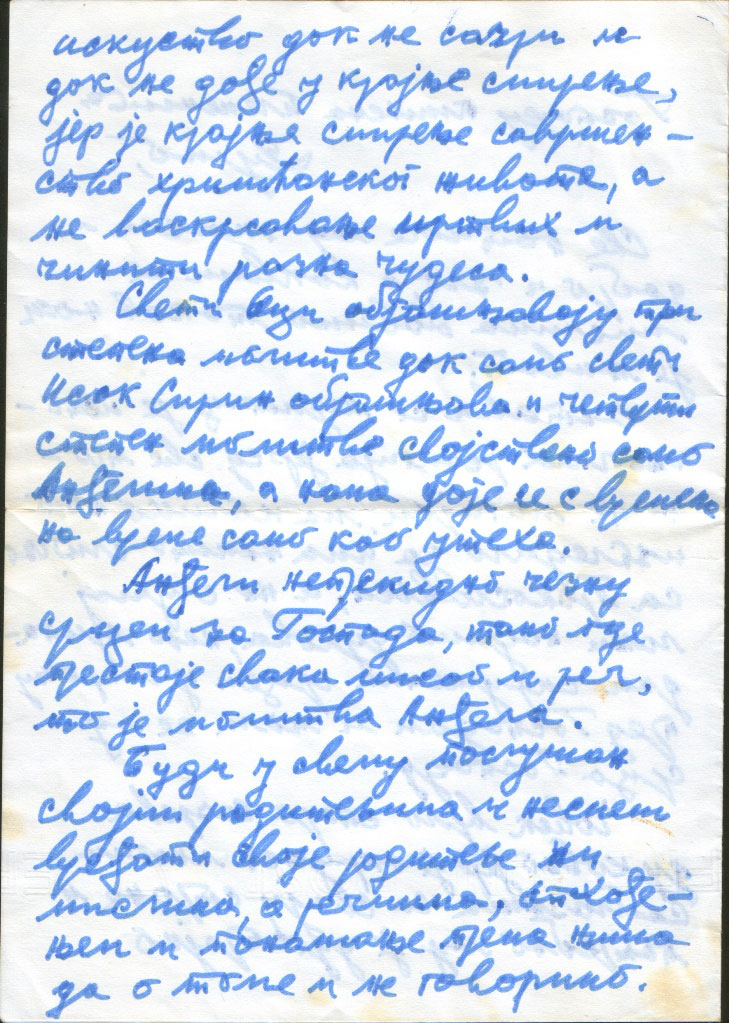 искуство док не сазри и
док не дође у крајње смирење,
јер је крајње смирење савршен-
ство хришћанског живота, а
не васкрсавање мртвих и
чинити разна чудеса.
Свети Оци објашњавају три
степена молитве док само свети
Исак Сирин објашњава и четврти
степен молитве својствен само
Анђелима, а нама даје се с времена
на време само као утеха.
Анђели непрекидно чезну
срцем за Господа, тамо где
престаје свака мисао и реч,
то је молитва Анђела.
Буди у свему послушан
својим родитељима и несмеш
вређати своје родитеље ни
мислима, а речима, опхође-
њем и понашање према њима
да о томе и не говоримо.